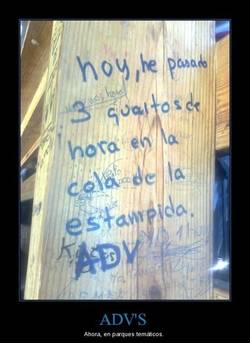 hoy, he pasado
3 quartos de
hora en la
cola de la
estampida.
ADV
ADV'S
Ahora, en parques temáticos.